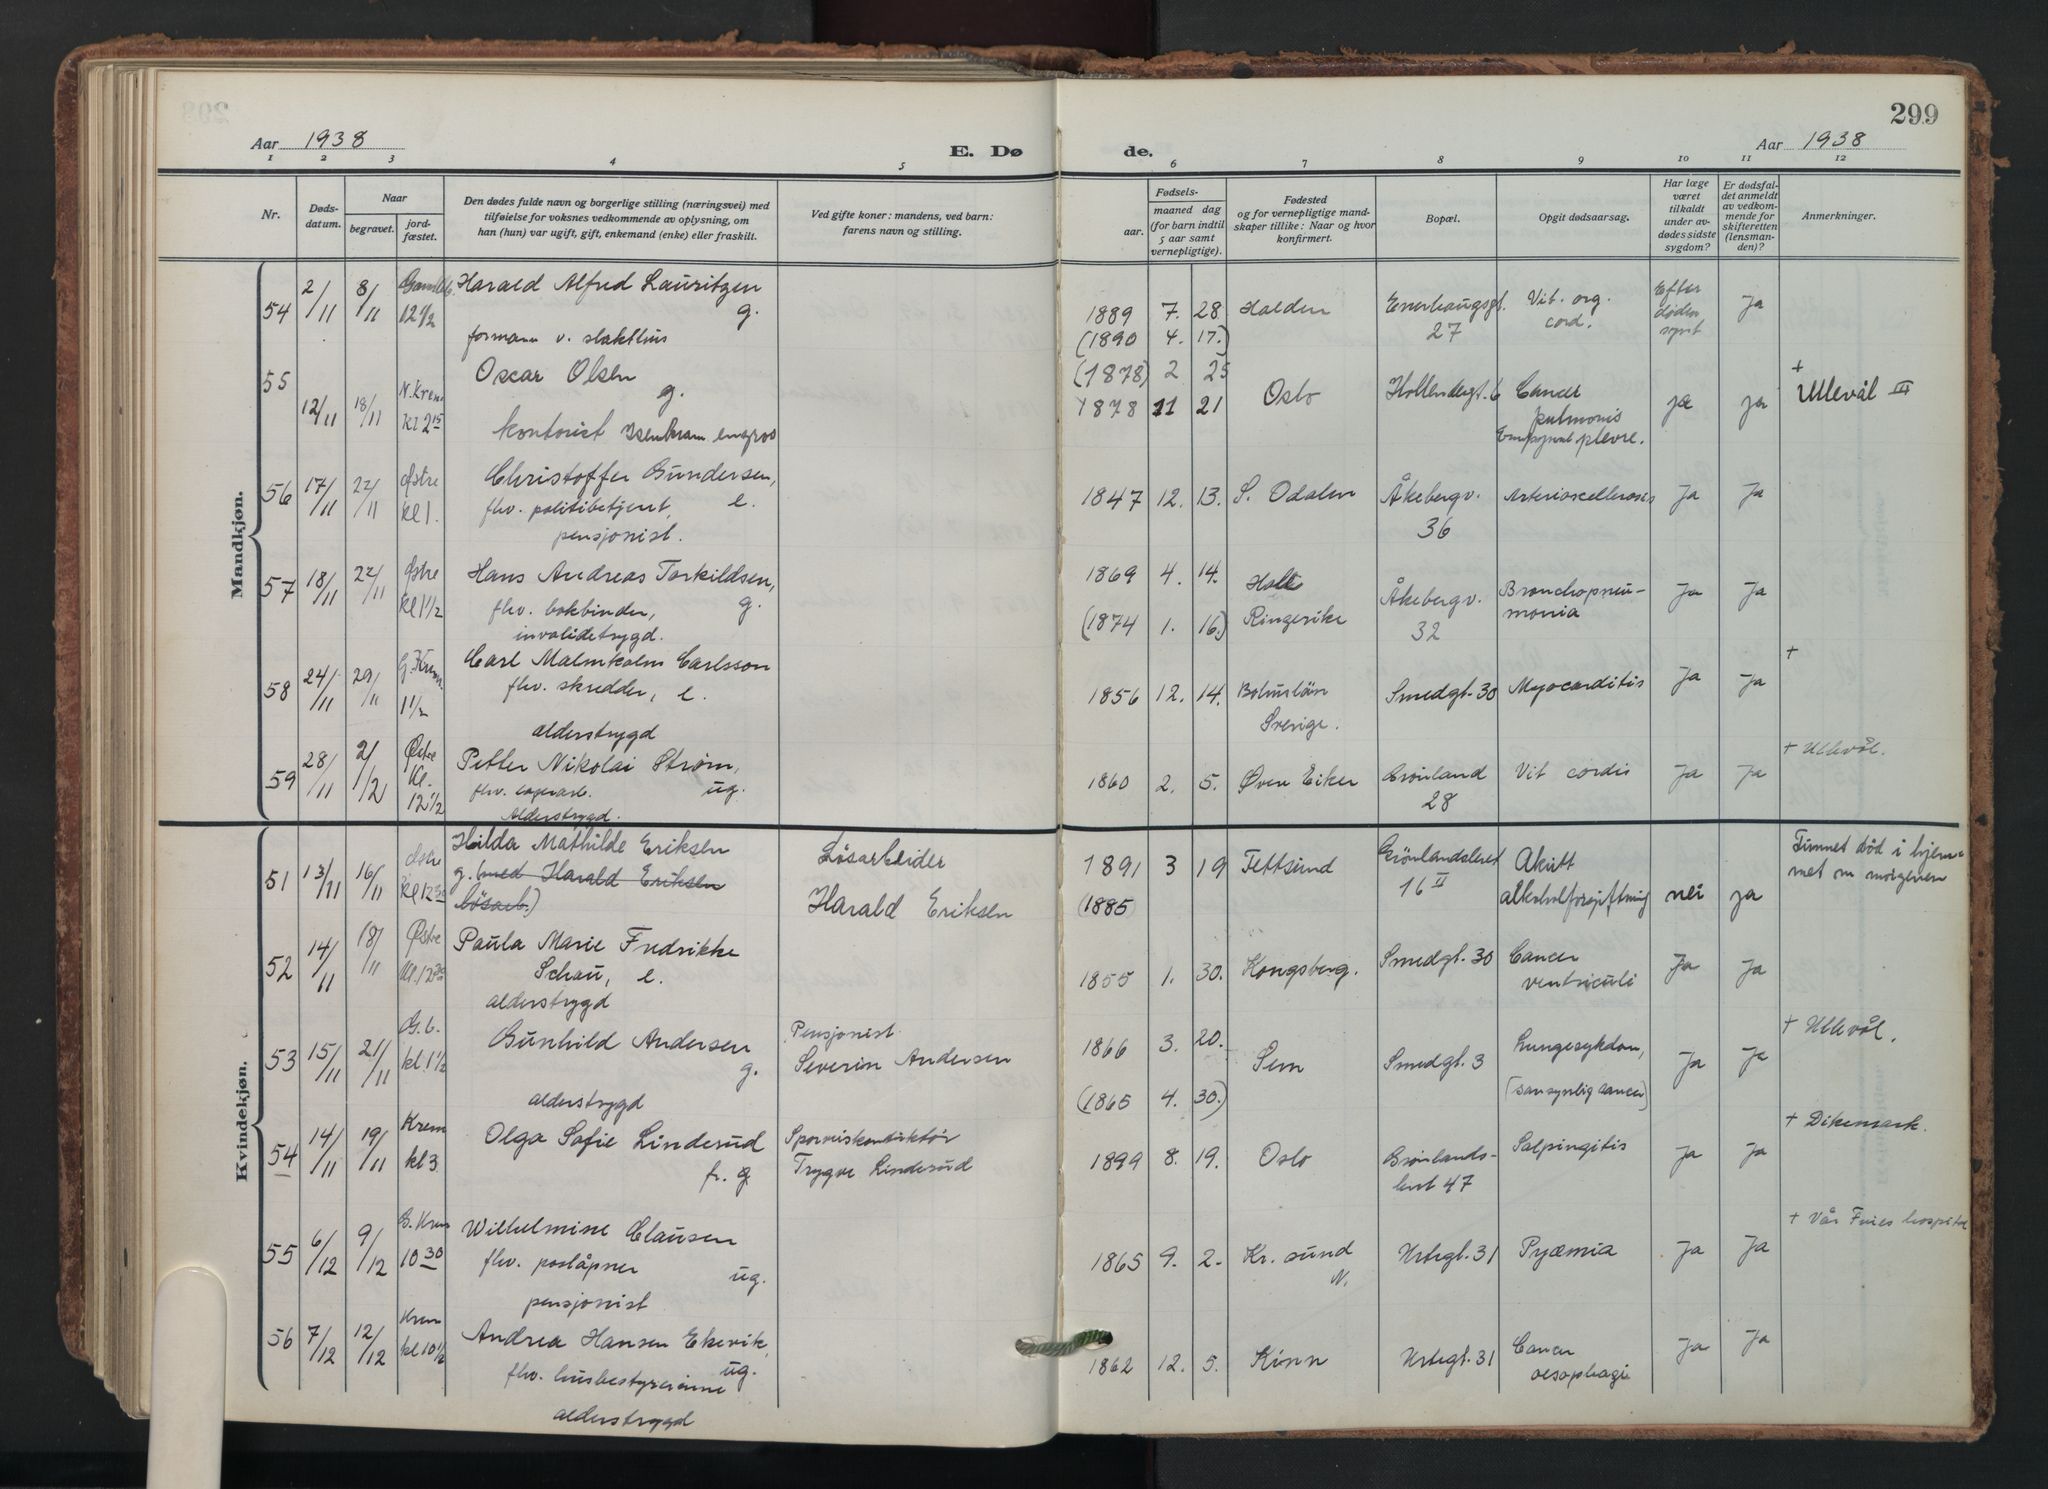 299
Aar 1938
E. Døde.
Aar 1938
1 2 3 4 5 6 7 8 9 10 11 12
Nr.
Døds-
datum.
Naar
begravet.
jord-
fæstet.
Den dødes fulde navn og borgerlige stilling (næringsvei) med
tilføielse for voksnes vedkommende av oplysning, om
han (hun) var ugift, gift, enkemand (enke) eller fraskilt.
Ved gifte koner: mandens, ved barn:
farens navn og stilling.
Fødsels-
aar.
maaned dag
(for barn indtil
5 aar samt
vernepligtige).
Fødested
og for vernepligtige mand-
skaper tillike: Naar og hvor
konfirmert.
Bopæl.
Opgit dødsaarsag.
Har læge
været
tilkaldt
under av-
dødes sidste
sygdom?
Er dødsfal-
det anmeldt
av vedkom-
mende for
skifteretten
(lensman-
den)?
Anmerkninger.
Mandkjøn.
54 2/11 8/11 12 1/2 Harald Alfred Lauritzen g.
formann v. slakthus
1889 7. 28 Halden
(1890 4. 17.)
Enerhaugsgt.
27
Vit. org.
cord.
Efter
døden
synt
Ja
55 12/11 18/11 N. Krem. Kl 2 15 Oscar Olsen g.
kontorist Isenkram engros
(1878) 2 25
1878 11 21 Oslo
Hollendergt. 6
Cancer
pulmonis
Empyem plevre.
ja ja
+ Ullevål III
56 17/11 22/11 Østre kl 1. Christoffer Gundersen, e.
fhv. politibetjent,
pensjonist.
1847 12. 13. S. Odalen
Åkebergv.
36
Ja Ja
57 18/11 22/11 Østre kl 1 1/2 Hans Andreas Torkildsen, g.
fhv. bokbinder,
invalidetrygd.
1869 4. 14. Hole
(1874 1. 16.) Ringerike
Åkebergv.
32
Bronchopneu-
monia
Ja Ja
58 24/11 29/11 G. Krem. 1 1/2 Carl Malmkolm Carlsson
fhv. skredder, e.
alderstrygd
1856 12. 14. Bohuslän
Sverige.
Smedgt. 30
Myocarditis
Ja Ja
+
59 28/11 2/12 Østre Kl. 12 1/2 Petter Nikolai Strøm, ug.
Alderstrygd.
1860 2. 5. Øvre Eiker
Grønland
28
Vit cordis
Ja Ja
+ Ullevål.
Kvindekjøn.
51 13/11 16/11 Østre Kl 12 30 Hilda Mathilde Eriksen
g. (med Harald Eriksen
løsarb.)
Løsarbeider
Harald Eriksen
1891 3 19 Fettsund
(1885)
Grønlandsleret
16 II
Akutt
alkoholforgiftning
nei ja
Funnet død i hjem-
met om morgenen
52 14/11 18/11 Østre Kl. 12 30 Paula Marie Fredrikke
Schau, e.
alderstrygd
1855 1. 30. Kongsberg.
Smedgt. 30
Cancer
ventriculi
Ja Ja
53 15/11 21/11 G. k. kl. 1 1/2 Gunhild Andersen g.
alderstrygd
Pensjonist
Severin Andersen
1866 3. 20. Sem
(1865 4. 30.)
Smedgt. 3
Lungesykdom,
(sansynlig cancer)
Ja Ja
+ Ullevål.
54 14/11 19/11 Krem kl 3 Olga Sofie Linderud
fr. g
Sporveiskonduktør
Trygve Linderud
1899 8. 19. Oslo
Grønlands-
leret 47
Salpingitis
Ja Ja
+ Dikemark.
55 6/12 9/12 G. Krem 10 30 Wilhelmine Clausen
fhv. poståpner ug.
pensjonist
1865 9. 2. Kr. sund
N.
Urtegt. 31
Pyæmia
Ja Ja
+ Vår Frues hospital
56 7/12 12/12 Krem kl 10 1/2 Andrea Hansen Ekevik,
fhv. husbestyrerinne ug.
alderstrygd
1862 12. 5. Kinn
Urtegt. 31
Cancer
oesophagi
Ja Ja